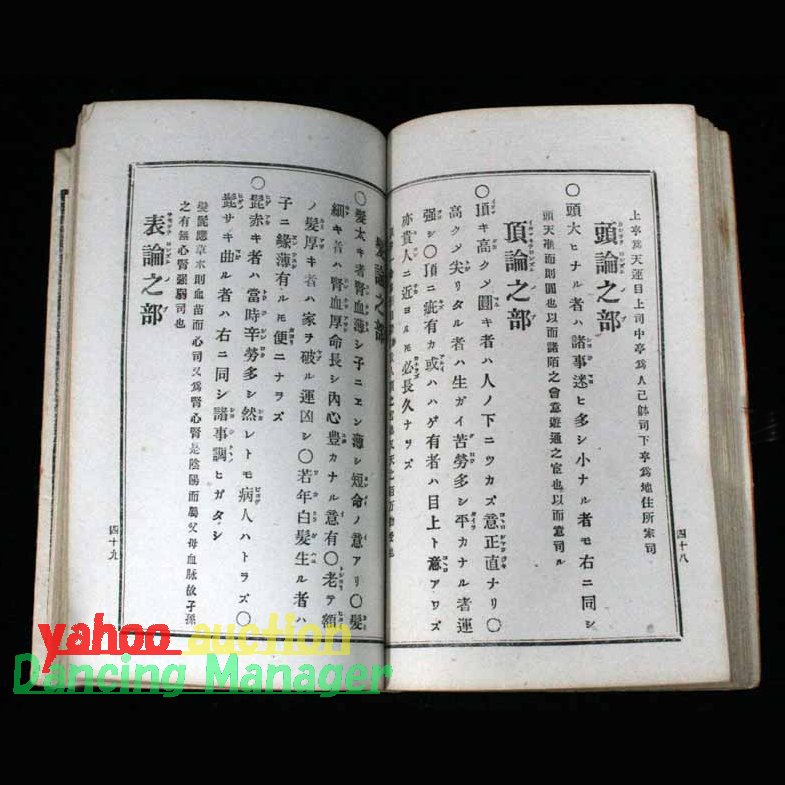 上亭爲天運目上司中亭爲人己躰司下亭爲地住所家司
頭論之部
○頭大ヒナル者ハ諸事迷ヒ多シ小ナル者モ右ニ同シ
頭天推而則圓也以而諸陌之會意遊通之宦也以而意司ル
頂論之部
○頂キ高クメ圓キ者ハ人ノ下ニツカズ意正直ナリ○
高クメ尖リタル者ハ生ガイ苦勞多シ平カナル者運
强シ○頂ニ疵有カ或ハハゲ有者ハ目上ト意アワズ
亦貴人ニ近ヨルモ必長久ナラズ
四十八
髮論之部
○髮太キ者腎血薄シ子ニヱン薄シ短命ノ意アリ○髮
細キ者ハ腎血厚命長シ內心豊カナル意有○老テ額
ノ髮厚キ者ハ家ヲ破ル運凶シ○若年白髮生ル者ハ
子ニ緣薄有ルモ便ニナラズ
○髭赤キ者ハ當時辛勞多シ然レトモ病人ハトラズ○
髭サキ曲ル者ハ右ニ同シ諸事調ヒガタシ
髮髭應草木則血苗而心司又爲腎心腎是陰陽而屬父母血脉故子孫
之有無心腎强弱司也
表論之部
四十九
yahoo auction
Dancing Manager